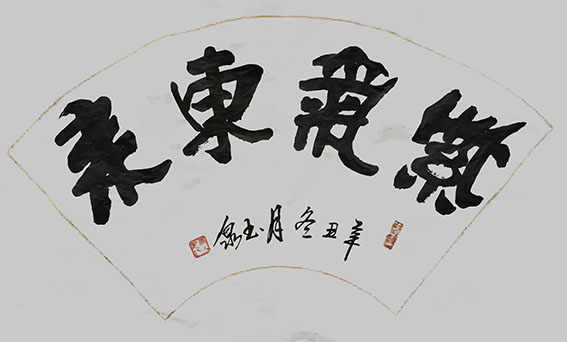 紫氣東來
辛丑冬月玉